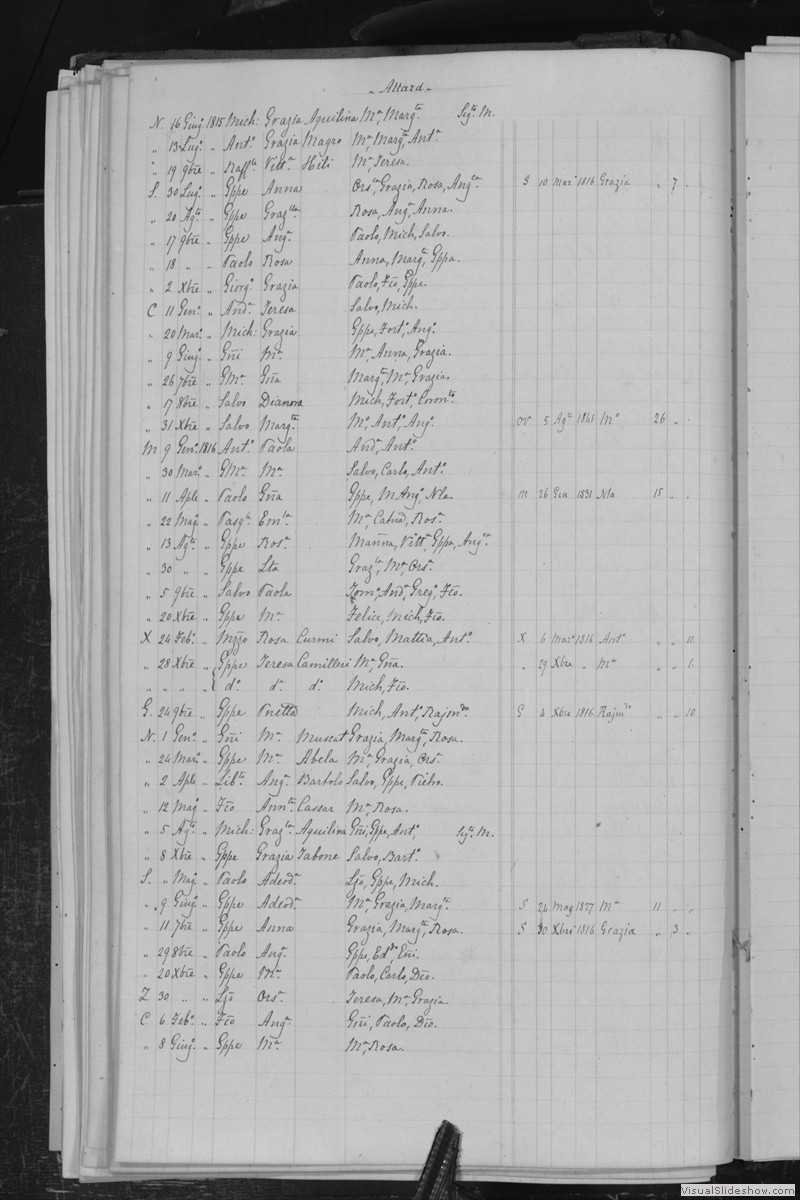 - Attard -
N. 16 Giugo. 1815 Mich: Grazia Aquilina Ma, Margta. Segta. M.
" 13 Lugo. " Anto. Grazia Magro Ma, Margta, Anta.
" 19 9bre " Raffle Vitta. Hili Ma, Teresa.
S. 30 Lugo. " Gppe Anna Orsla, Grazia, Rosa, Angca. S 10 Maro 1816 Grazia " 7 "
" 20 Agto. " Gppe Grazlla Rosa, Anga, Anna.
" 17 9bre " Gppe Anga. Paolo, Mich, Salvo.
" 18 " " Paolo Rosa Anna, Margta, Gppa.
" 2 Xbre " Giorgo. Grazia Paolo, Fco, Gppe.
C 11 Geno. " Anda. Teresa Salvo, Mich.
" 20 Maro. " Mich: Grazia Gppe, Forto, Ango.
" 9 Giugo. " Gñi Ma. Ma, Anna, Grazia.
" 26 7bre " GMa. Gña Margta, Ma, Grazia.
" 17 8bre " Salvo Dianora Mich, Forto,
" 31 Xbre " Salvo Margta. Mo, Anto, Ango. OV 5 Agto 1841 Mo 26 " "
M 9 Geno. 1816 Anto. Paola Anda, Anto.
" 30 Maro. " GMa. Ma. Salvo, Carlo, Anto.
" 11 Aple " Paolo Gña Gppe, M Ango, Nla. M 26 Gen 1831 Nla 15 " "
" 22 Mago " Pasqle Emla. Ma, Catnd, Rosa.
" 13 Agto. " Gppe Rosa. Marña, Vitta, Gppa, Angca.
" 30 " " Gppe Lta Grazla, Ma, Orsa.
" 5 9bre " Salvo Paola Domo, Anda, Grego, Fco.
" 20 Xbre " Gppe Ma. Felice, Mich, Fco.
X 24 Febo. " Nzzo Rosa Curmi Salvo, Mattia, Anto. X 6 Maro 1816 Anto " " 11
" 28 Xbre " Gppe Teresa Camilleri Ma, Gña. " 29 Xbre " Ma " " 1
" " " " do. do. do. Mich, Fco.
G. 24 9bre " Gppe Pretta Mich, Anto, Rajmdo. G 4 Xbre 1816 Rajmdo " " 10
N. 1 Geno. " Gñi Ma. Muscat Grazia, Margta, Rosa.
" 24 Maro. " Gppe Ma. Abela Ma, Grazia, Orsa.
" 2 Aple " Libto. Anga. Bartolo Salvo, Gppe, Pietro.
" 12 Mago " Fco Annta. Cassar Ma, Rosa.
" 5 Agto. " Mich: Grazla. Aquilina Gñi, Gppe, Anto. Segta. M.
" 8 Xbre " Gppe Grazia Tabone Salvo, Barto.
S. " Mago " Paolo Adeoda. Lzo, Gppe, Mich.
" 9 Giugo. " Gppe Adeoda. Ma, Grazia, Margta. S 24 Mag 1827 Ma 11 " "
" 11 7bre " Gppe Anna Grazia, Margta, Rosa. S 30 Xbre 1816 Grazia " 3 "
" 29 8bre " Paolo Anga. Gppe, Eddo,
" 20 Xbre " Gppe Ma. Paolo, Carlo, Dco.
Z 30 " " Lzo Orsa. Teresa, Ma, Grazia.
C 6 Febo. " Fco Anga. Gñi, Paolo, Dco.
" 8 Giugo. " Gppe Ma. Ma, Rosa.
VisualSlideshow.com